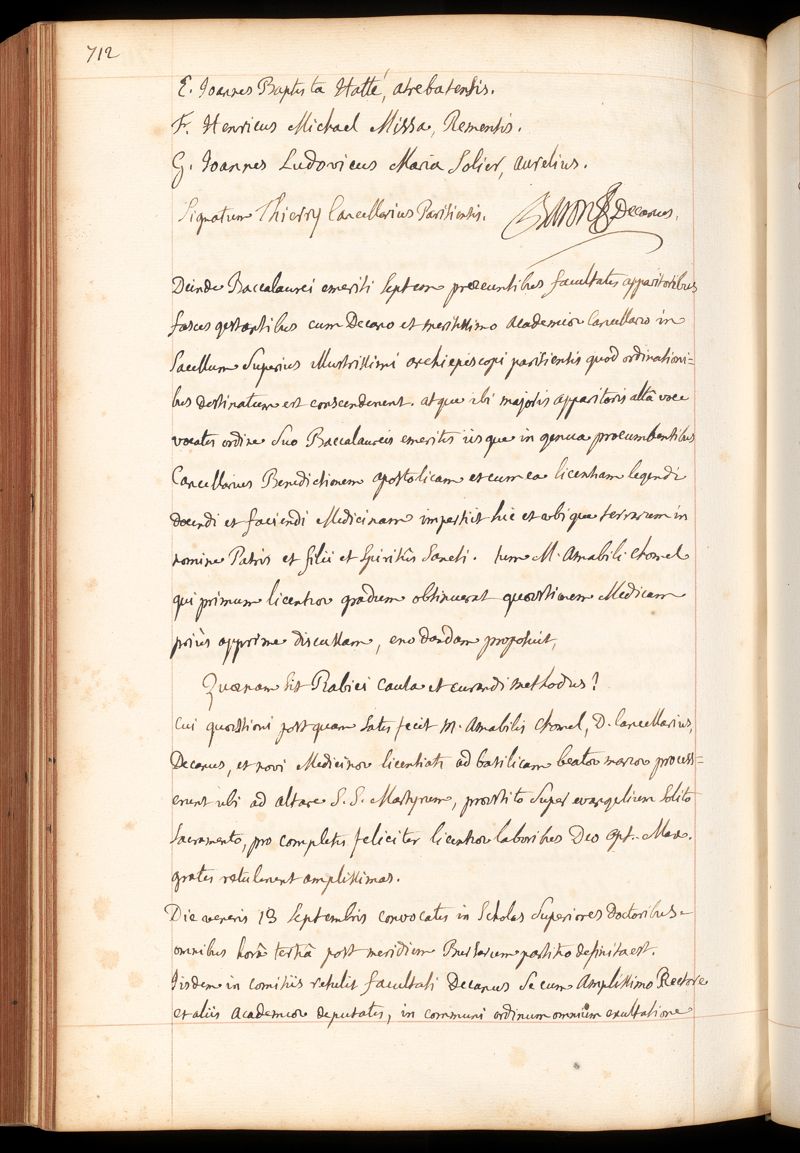 712
E. Joannes Baptista Hatté, atrebatensis.
F. Henricus Michael Missa, Remensis.
G. Joannes Ludovicus Maria Solier, aurelius.
Signatum Thierry Cancellarius Parisiensis. Baron Decanus.
Deinde Baccalaurei emeriti septem præeuntibus facultatis apparitoribus
fasces gestantibus cum Decano et meritissimo Academiæ Cancellario in
Sacellum Superius illustrissimi archiepiscopi parisiensis quod ordinationi=
bus destinatum est conscenderunt. atque ibi majoris apparitoris altâ voce
vocatis ordine suo Baccalaureis emeritis iisque in genua procumbentibus
Cancellarius Benedictionem apostolicam et cum ea licentiam legendi
docendi et faciendi Medicinam impertiit hic et ubique terrarum in
nomine Patris et filii et Spiritûs Sancti. tum M. Amabili Chomel
qui primum licentiæ gradum obtinuerat quæstionem Medicam
priùs apprime discussam, enodandam proposuit,
Quænam sit Rabiei causa et curandi methodus?
Cui quæstioni postquam satis fecit M. Amabilis Chomel, D. Cancellarius,
Decanus, et novi Medicinæ licentiati ad basilicam beatæ mariæ process=
erunt ubi ad altare S. S. Martyrum, præstito super evangelium solito
Sacramento, pro completis feliciter licentiæ laboribus Deo Opt. Max.
grates retulerunt amplissimas.
Die veneris 13 Septembris convocatis in Scholas Superiores doctoribus
omnibus horâ tertiâ post meridiem Bursarum partitio definita est.
Iisdem in comitiis retulit facultati Decanus se cum Amplissimo Rectore
et aliis Academiæ deputatis, in communi ordinum omnium exultatione